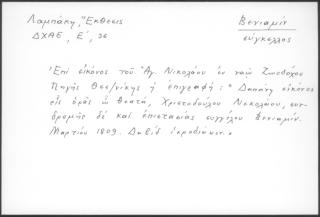 Λαμπάκη, Ἔκθεσις
Βενιαμίν
ΔΧΑΕ, Ε΄, 36
σύγκελλος
"Ἐπὶ εἰκόνος τοῦ Ἁγ. Νικολάου ἐν ναῷ Ζωοδόχου
Πηγῆς Θεσ/νίκης ἡ ἐπιγραφή: "Δαπάνη εἰκόνος
εἰς ὁρᾷς ὦ θεατά, Χριστοδούλου Νικολάου, συν-
δρομῆς δὲ καὶ ἐπιστασίας συγγέλου Βενιαμίν.
Μαρτίου 1809. Δαβίδ ἱεροδιάκον."